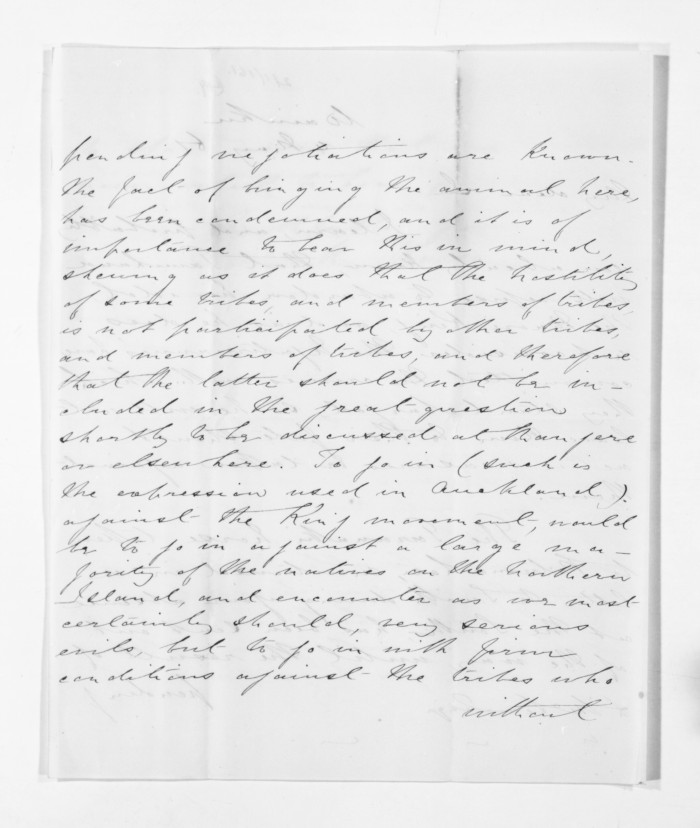 pending negotiations are known.
The fact of bringing the animal here,
has been condemned, and it is of
importance to bear this in mind,
shewing as it does that the hostility
of some tribes, and members of tribes,
is not participated by other tribes,
and members of tribes, and therefore
that the latter should not be in-
cluded in the great question
shortly to be discussed at Mangere
or elsewhere. To go in (such is
the expression used in Auckland,)
against the King movement, would
be to go in against a large ma-
jority of the natives on the Northern
Island, and encounter as we most
certainly should, very serious
evils, but to go in with firm
conditions against the tribes who
without